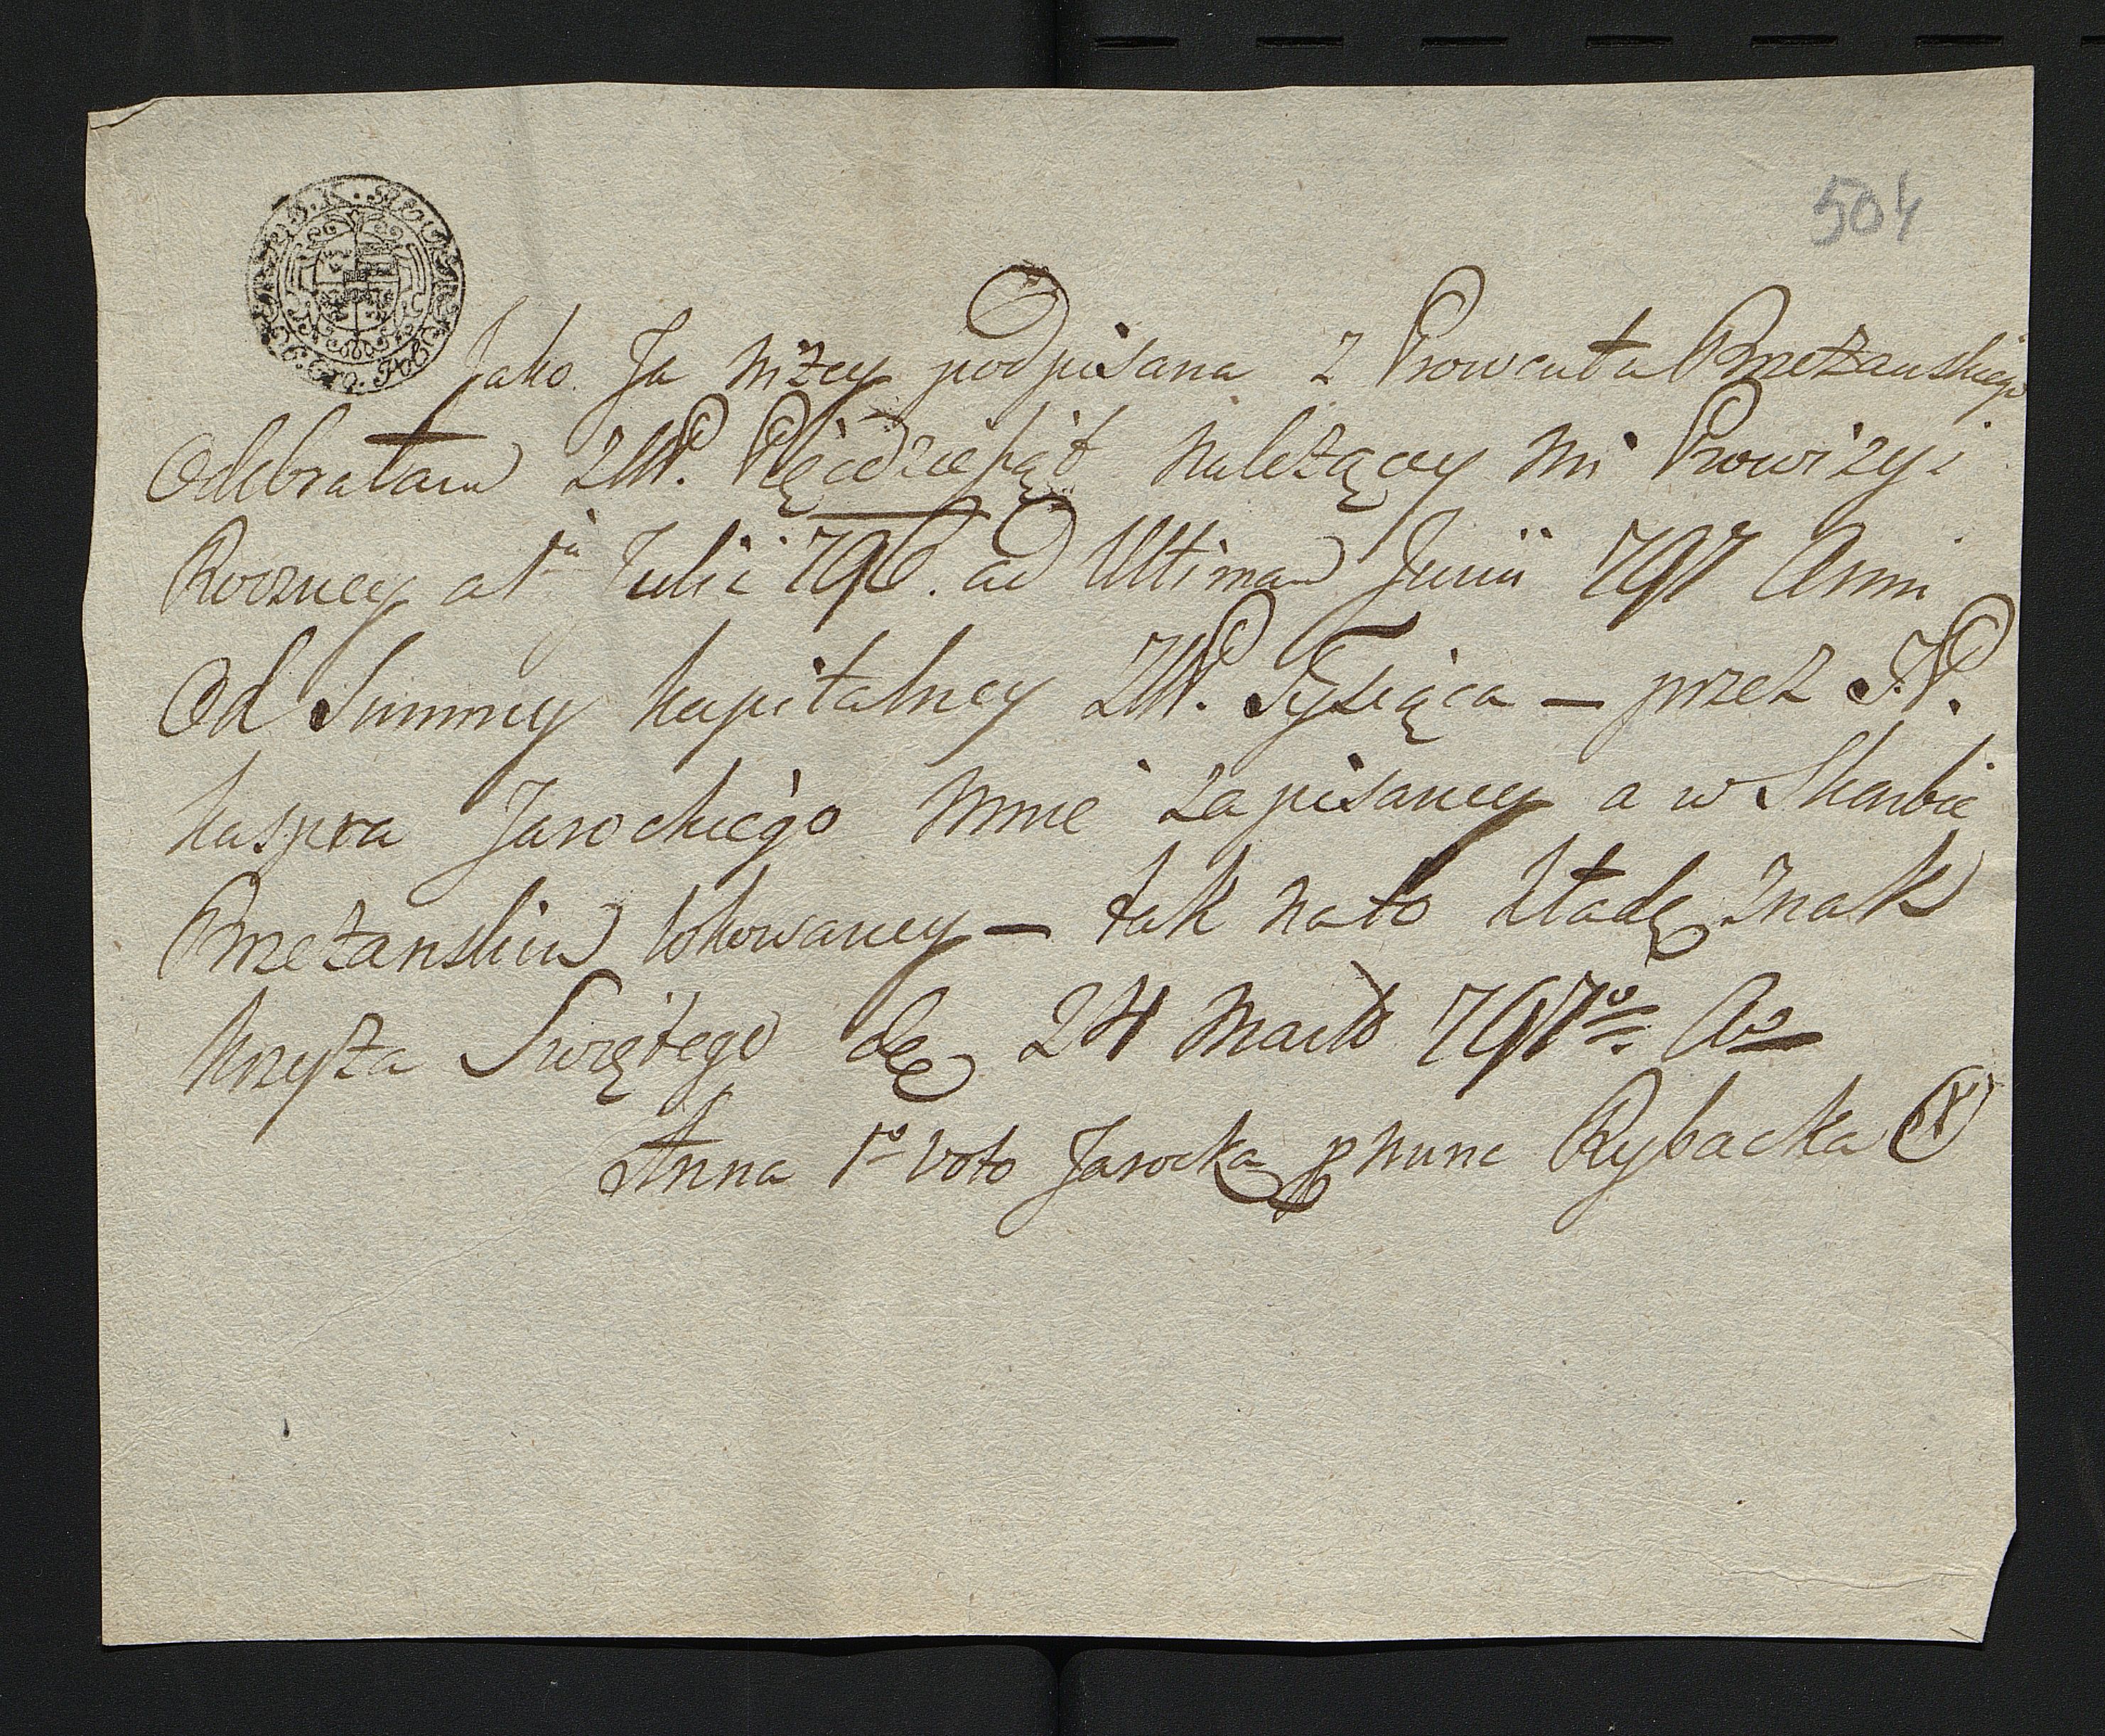 504
Jako Ja niżey podpisana z Prowentu Brzeżanskiego
Odebrałam ZłłP. Pięcdziesiąt należącey mi Prowizyi
Roczney a 1ma Julii 796. ad Ultimam Junii 797 Anni
Od Summy kapitalney ZłłP. Tysiąca — przez J.P.
kaspra Jarockiego mnie zapisaney a w Skarbie
Brzeżanskim lokowaney — tak na to kładę znak
krzyża Swiętego de 24 Marto 797o Ao
Anna 1o voto Jarocka nunc Rybacka